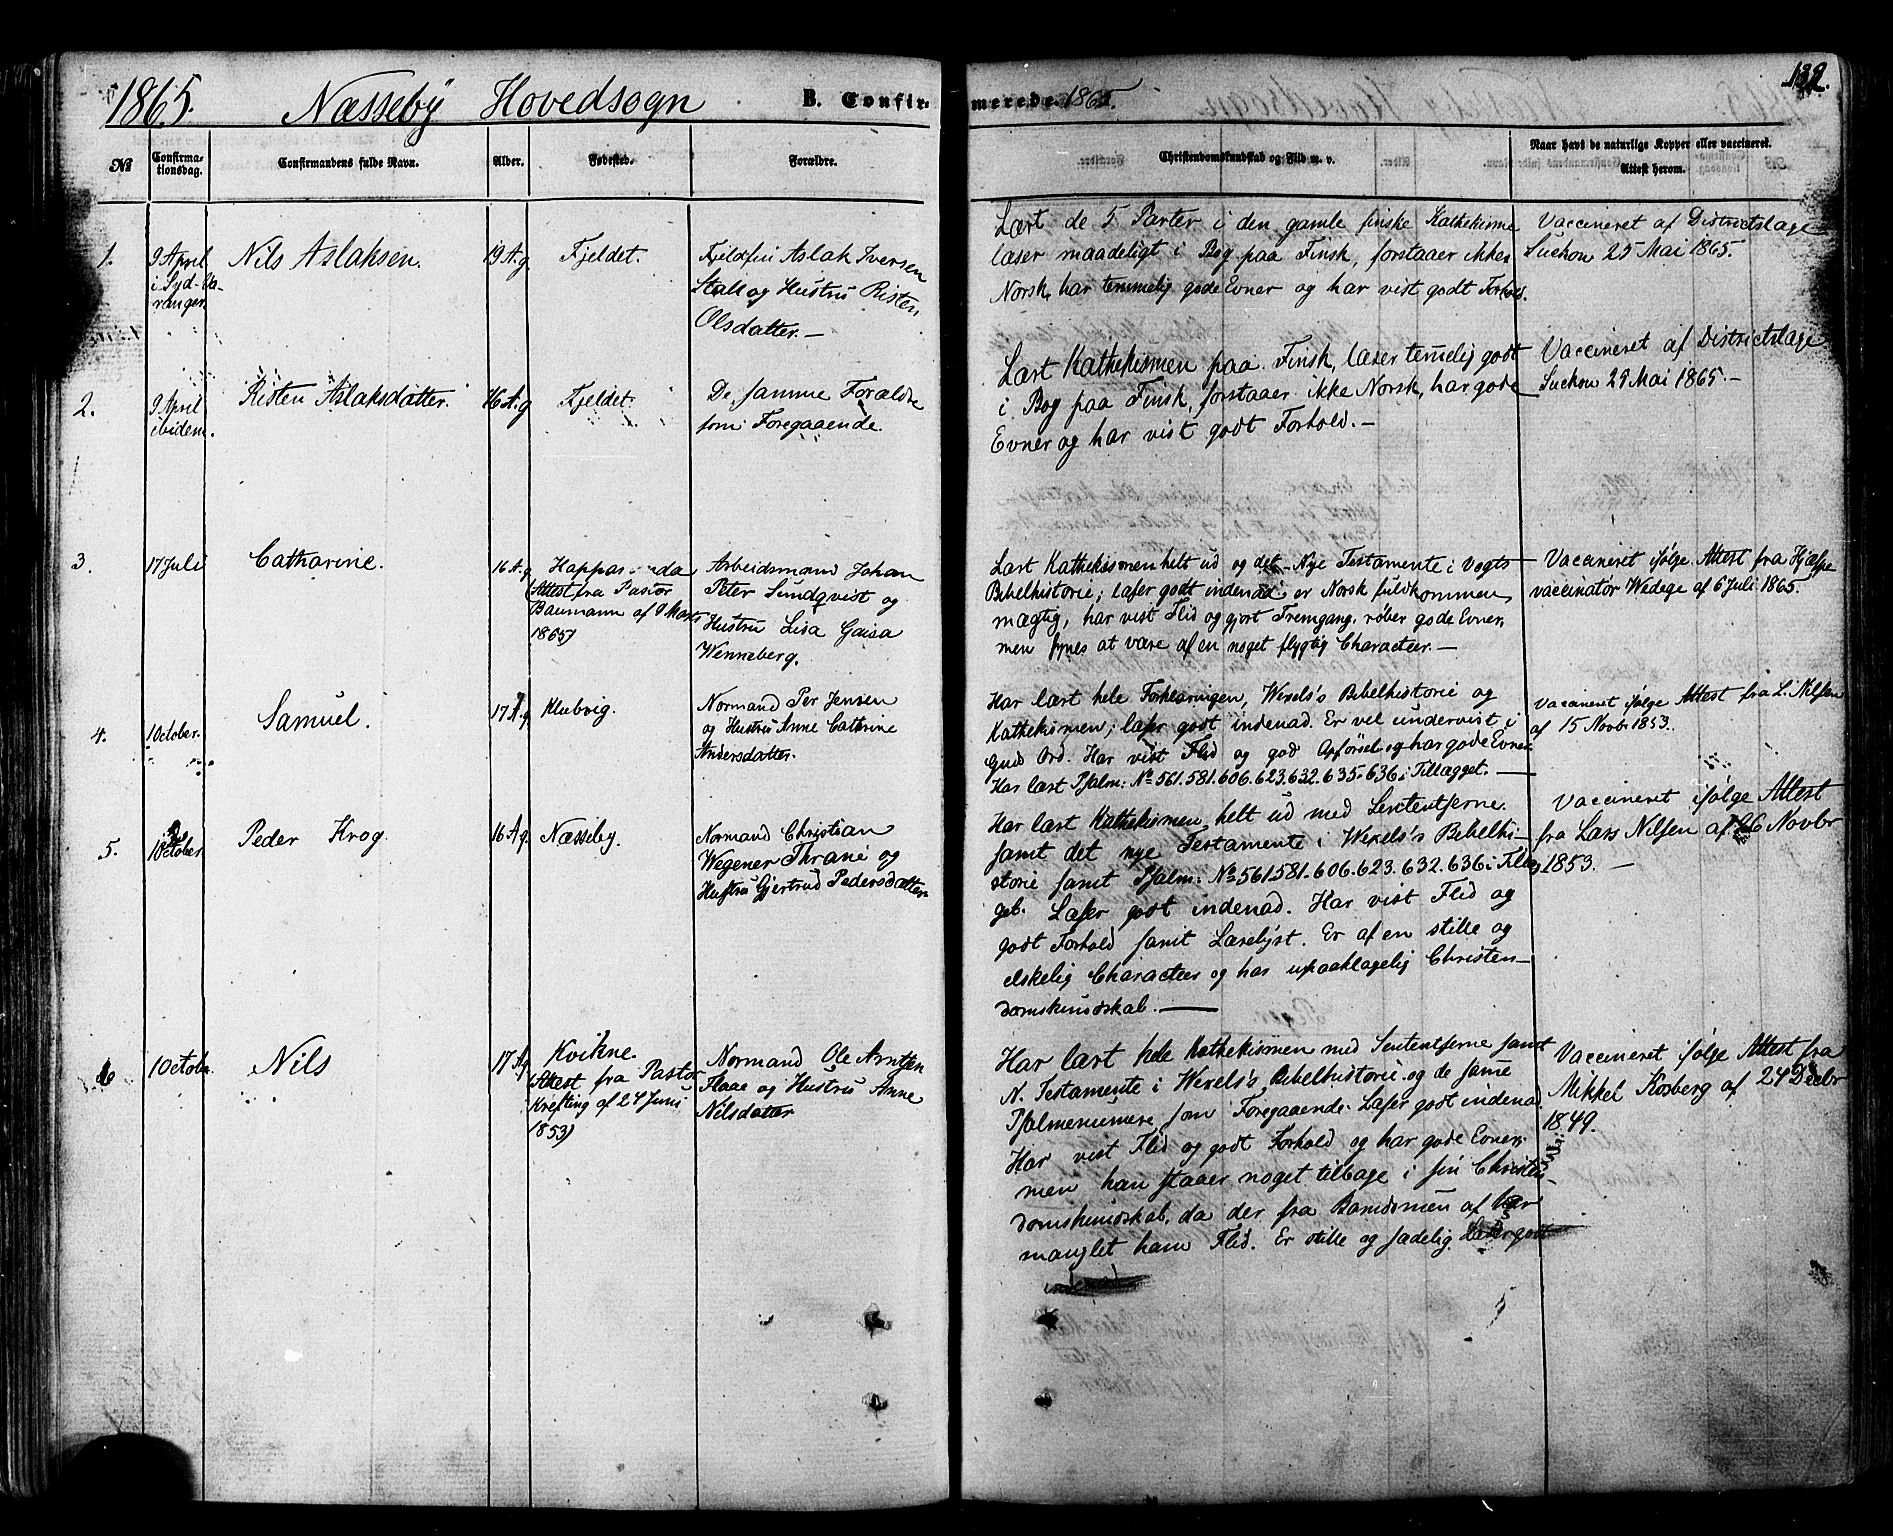 1865. Næsseby Hovedsogn B. Confirmerede 1865. 132.
No
Confirmationsdag.
Confirmandens fulde Navn.
Alder.
Fødested.
Forældre.
Christendomskundskab og Flid m. v.
Naar havt de naturlige Kopper eller vaccineret.
Attest herom.
1.
9 April
i Syd-Va-
ranger.
Nils Aslaksen.
19 A.g
Fjeldet.
Fjeldfin Aslak Iversen
Stall og Hustru Risten
Olsdatter. —
Lært de 5 Parter i den gamle finske Kathekisme
læser maadeligt i Bog paa Finsk, forstaaer ikke
Norsk, har temmelig gode Evner og har vist godt Forhold.
Vaccineret af Districtslæge
Suckow 25 Mai 1865.
2.
9 April
ibidem.
Risten Aslaksdatter.
16 A.g
Fjeldet.
De samme Forældre
som Foregaaende.
Lært Kathekismen paa Finsk, læser temelig godt
i Bog paa Finsk, forstaaer ikke Norsk, har gode
Evner og har vist godt Forhold. —
Vaccineret af Districtslæge
Suckow 29 Mai 1865. —
3.
17 Juli
Catharine.
16 A.g
Happaranda
(Attest fra Pastor
Baumann af 9 Marts
1865)
Arbeidsmand Johan
Peter Sundqvist og
Hustru Lisa Gaisa
Wenneberg.
Lært Kathekismen helt ud og det Nye Testamente i Vogts
Bibelhistorie; læser godt indenad; er Norsk fuldkommen
mægtig, har vist Flid og gjort Fremgang. røber gode Evner,
men synes at være af en noget flygtig Characteer. —
Vaccineret ifølge Attest fra Hjælpe
vaccinatør Wedege af 6 Juli 1865.
4.
1 October.
Samuel.
17 A.g
Klubvig.
Normand Per Jensen
og Hustru Anne Cathrine
Andersdatter.
Har lært hele Forklaringen, Wexels's Bibelhistorie og
Kathekismen; læser godt indenad. Er vel undervist i
Guds Ord. Har vist Flid og god Opførsel og har gode Evner
Har lært Psalm: No 561. 581. 606. 623. 632. 635. 636 i Tillægget. —
Vaccineret ifølge Attest fra L. Nilsen
af 15 Novbr 1853.
5.
1 October
Peder Krog.
16 A.g.
Næsseby.
Normand Christian
Wegener Thrane og
Hustru Gjertrud Pedersdatter.
Har lært Kathekismen helt ud med Sententserne
samt det nye Testamente i Wexels's Bibelhi-
storie samt Psalm: No 561. 581. 606. 623. 632. 636 i Tillæg
get. Læser godt indenad. Har vist Flid og
godt Forhold samt Lærelyst. Er af en stille og
elskelig Characteer og har upaaklagelig Christen-
domskundskab. —
Vaccineret ifølge Attest
fra Lars Nilsen af 26 Novbr
1853. —
6
1 Octobr
Nils
17 A.g
Kvikne.
(Attest fra Pastor
Krefting af 24 Juni
1853)
Normand Ole Arntsen
Flaae og Hustru Anne
Nilsdatter
Har lært hele Kathekismen med Sententserne samt
N. Testamente i Wexels's Bibelhistorie og de samme
Psalmenumere som Foregaaende. Læser godt indenad
Har vist Flid og godt Forhold og har gode Evner;
men han staaer noget tilbage i sin Christen-
domskundskab, da der fra Barndommen af har
manglet ham Flid. Er stille og sædelig. Læser godt
Vaccineret ifølge Attest fra
Mikkel Kosberg af 24 Decbr
1849.